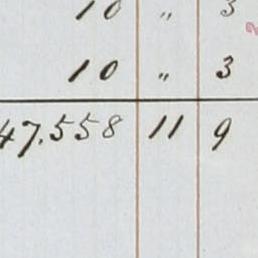 10 " 3
10 " 3
47.558 11 9